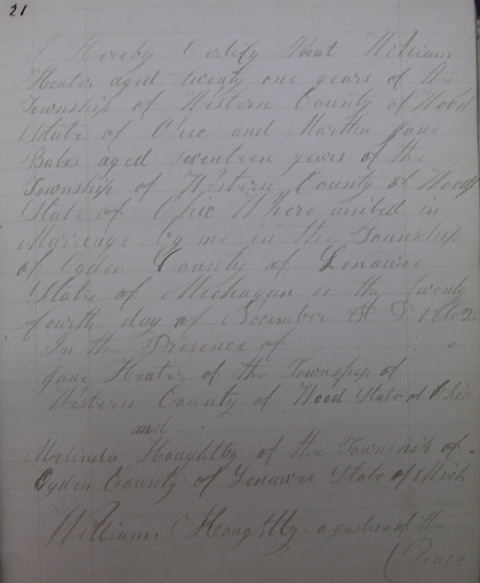 21
I Hereby Certify that William
Heater aged twenty one years of the
Township of Western County of Wood
State of Ohio and Martha Jane
Babes aged seventeen years of the
Township of Western County of Wood
State of Ohio Where united in
Marriage by me in the Township
of Ogden County of Lenawee
State of Michagan on the twenty
fourth day of December A D 1862
In the Presence of
Jane Heater of the Township of
Western County of Wood State of Ohio
and
Melinda Houghtby of the Township of
Ogden County of Lenawee State of Mich
William Houghtby a justice of the
Peace